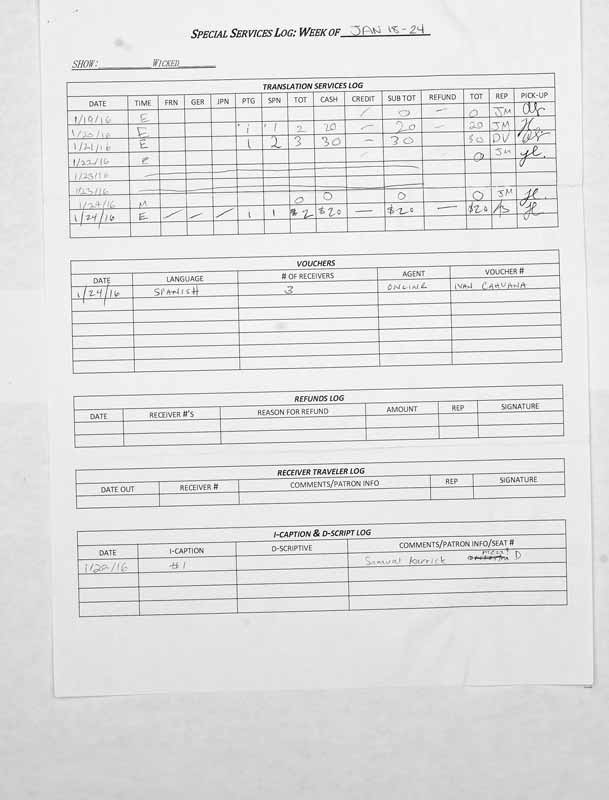 SPECIAL SERVICES LOG: WEEK OF JAN 18-24
SHOW: WICKED
TRANSLATION SERVICES LOG
DATE TIME FRN GER JPN PTG SPN TOT CASH CREDIT SUB TOT REFUND TOT REP PICK-UP
1/19/16 E / 0 — 0 JM
1/20/16 E 1 1 2 20 — 20 — 20 JM
1/21/16 E 1 2 3 30 — 30 30 DV
1/22/16 E 0 JM
1/23/16
1/23/16
1/24/16 M 0 0 0 0 JM
1/24/16 E / / / 1 1 $2 $20 — $20 — $20
VOUCHERS
DATE LANGUAGE # OF RECEIVERS AGENT VOUCHER #
1/24/16 SPANISH 3 ONLINE IVAN
REFUNDS LOG
DATE RECEIVER #'S REASON FOR REFUND AMOUNT REP SIGNATURE
RECEIVER TRAVELER LOG
DATE OUT RECEIVER # COMMENTS/PATRON INFO REP SIGNATURE
I-CAPTION & D-SCRIPT LOG
DATE I-CAPTION D-SCRIPTIVE COMMENTS/PATRON INFO/SEAT #
1/20/16 #1 D